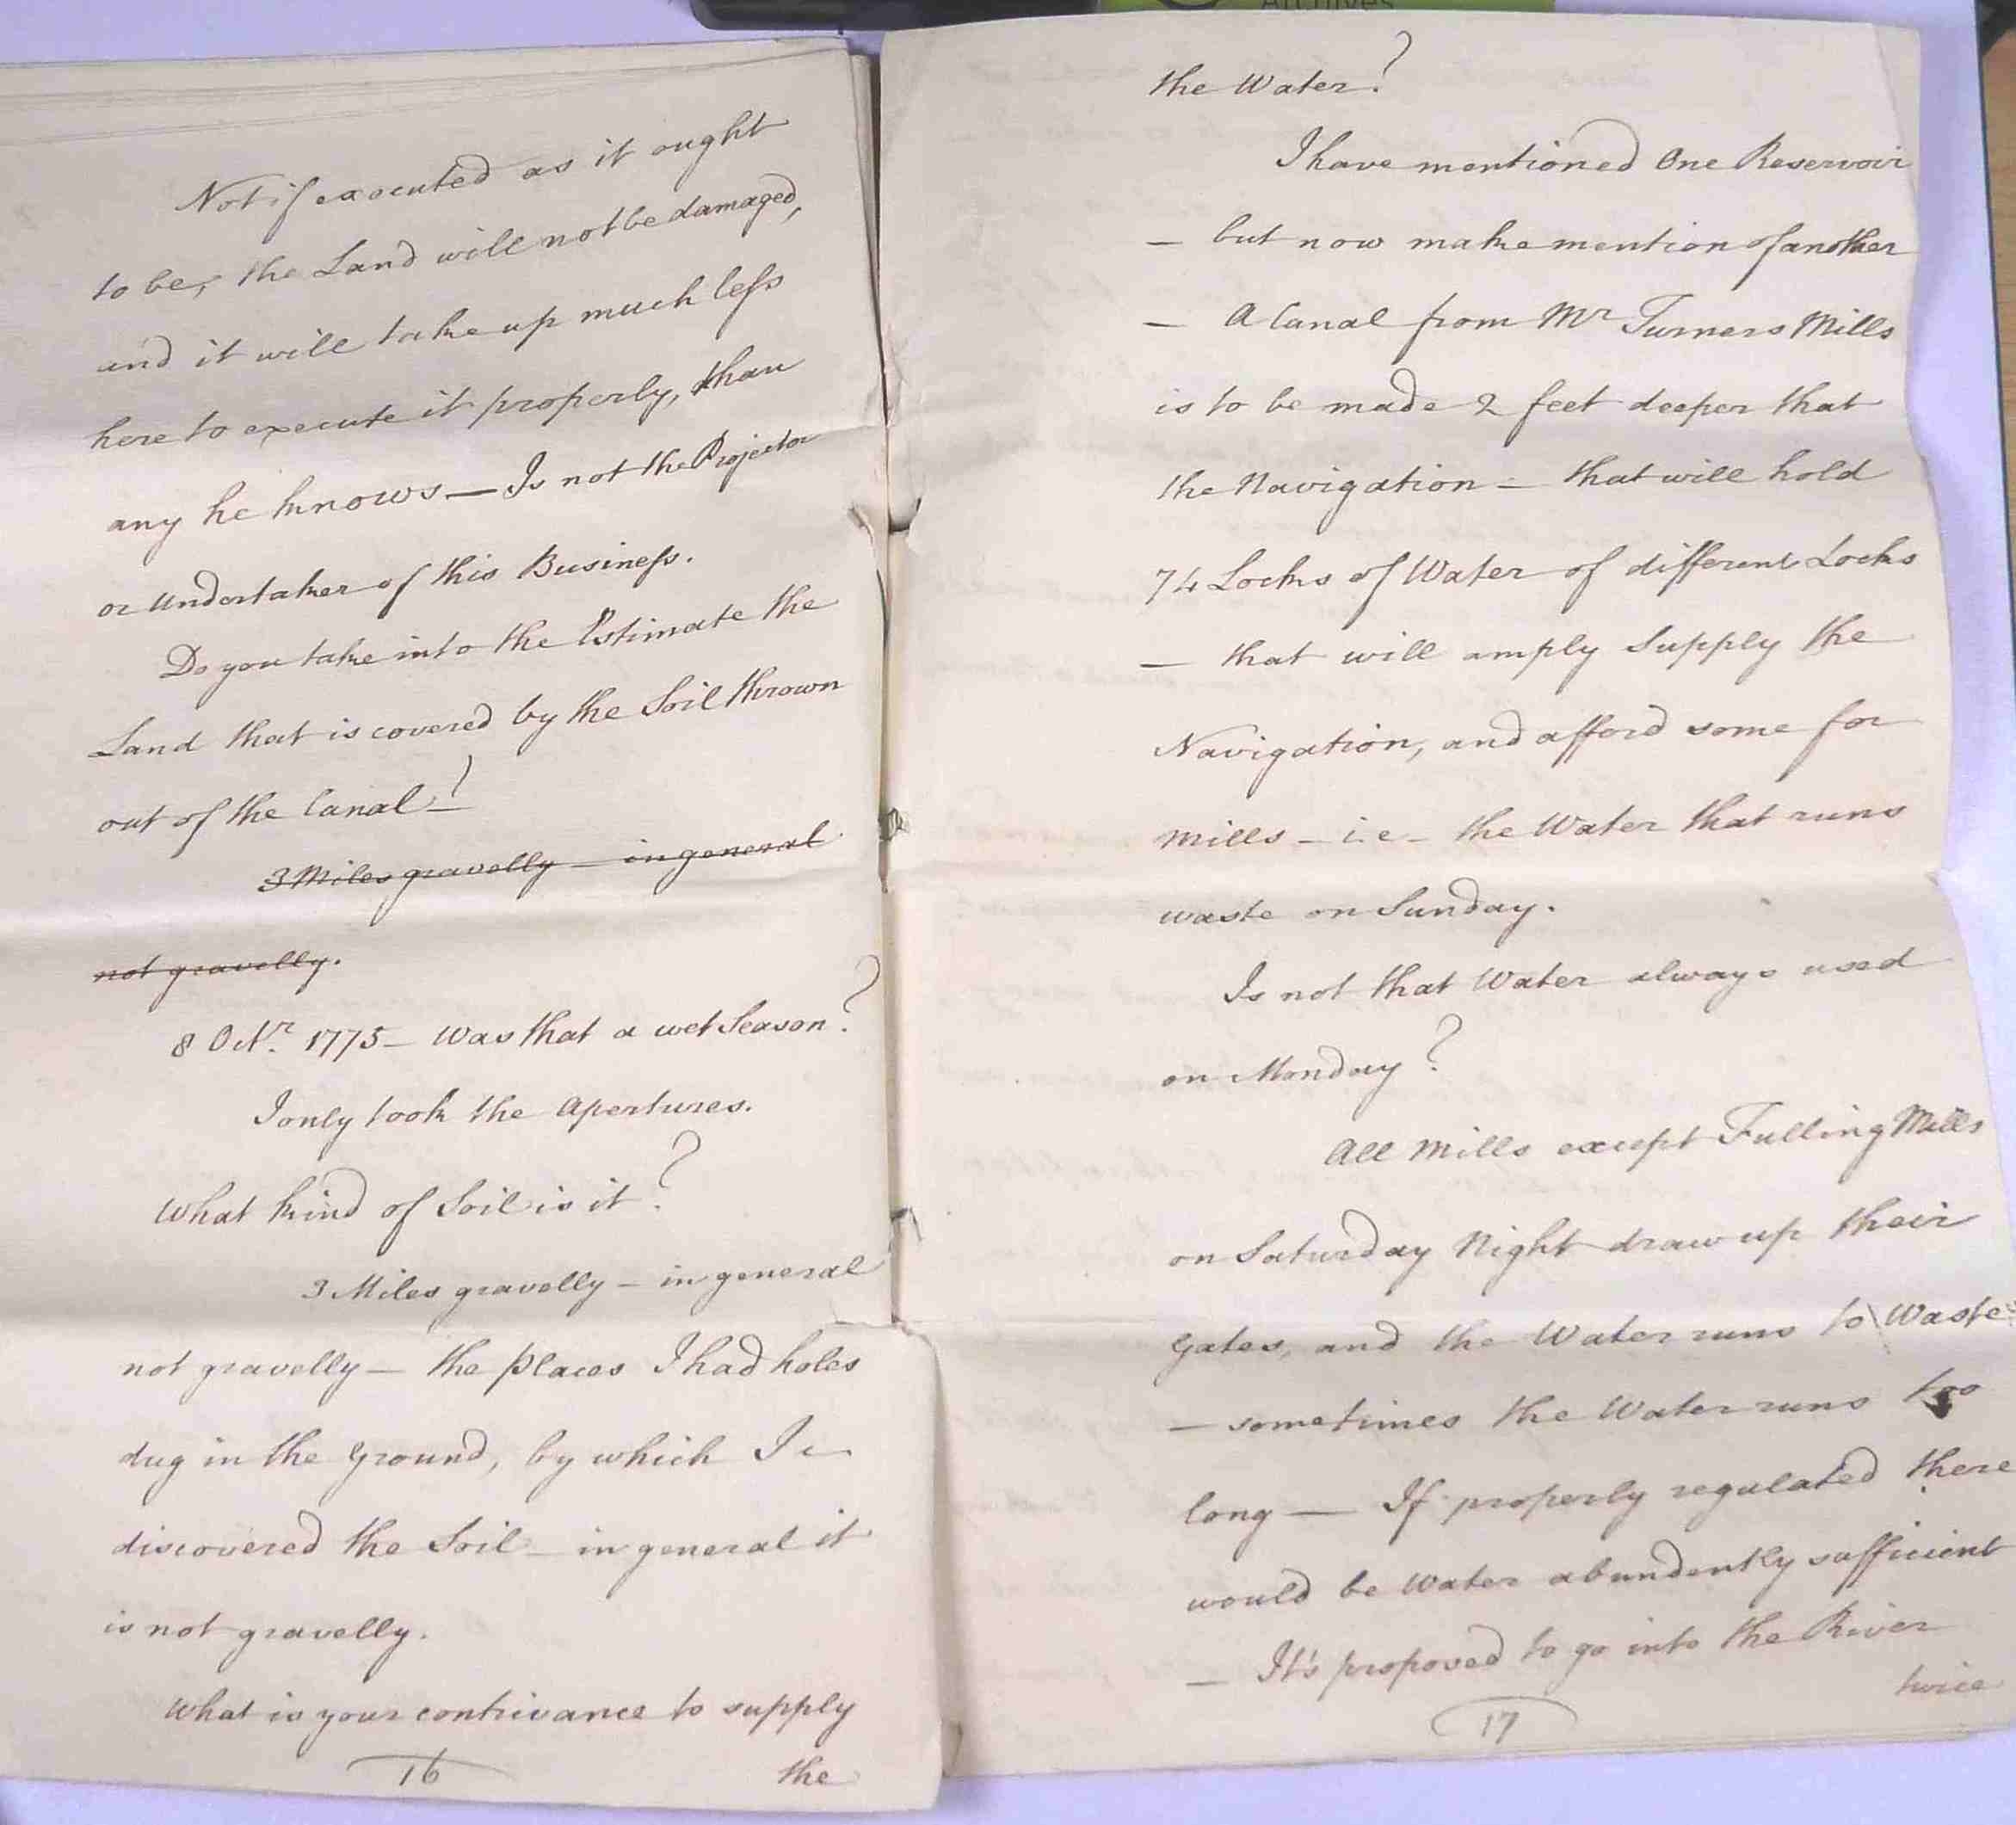 Archives
Not if executed as it ought
to be, the Land will not be damaged,
and it will take up much less
here to execute it properly, than
any he knows — Is not the Projector
or Undertaker of this Business.
Do you take into the Estimate the
Land that is covered by the Soil thrown
out of the Canal?
3 Miles gravelly — in general
not gravelly.
8 Octr. 1775 — Was that a wet Season?
I only took the Apertures.
What kind of Soil is it?
3 Miles gravelly — in general
not gravelly — the places I had holes
dug in the Ground, by which I
discovered the Soil — in general it
is not gravelly.
What is your contrivance to supply
16
the
the Water?
I have mentioned One Reservoir
— but now make mention of another
— A Canal from Mr Turners Mills
is to be made 2 feet deeper that
the Navigation — that will hold
74 Locks of Water of different Locks
— that will amply Supply the
Navigation, and afford some for
Mills — i.e — the Water that runs
waste on Sunday.
Is not that Water always used
on Monday?
All Mills except Fulling Mills
on Saturday Night draw up their
Gates, and the Water runs to Waste
— sometimes the Water runs too
long — If properly regulated there
would be Water abundently sufficient
— It's proposed to go into the River
17
twice